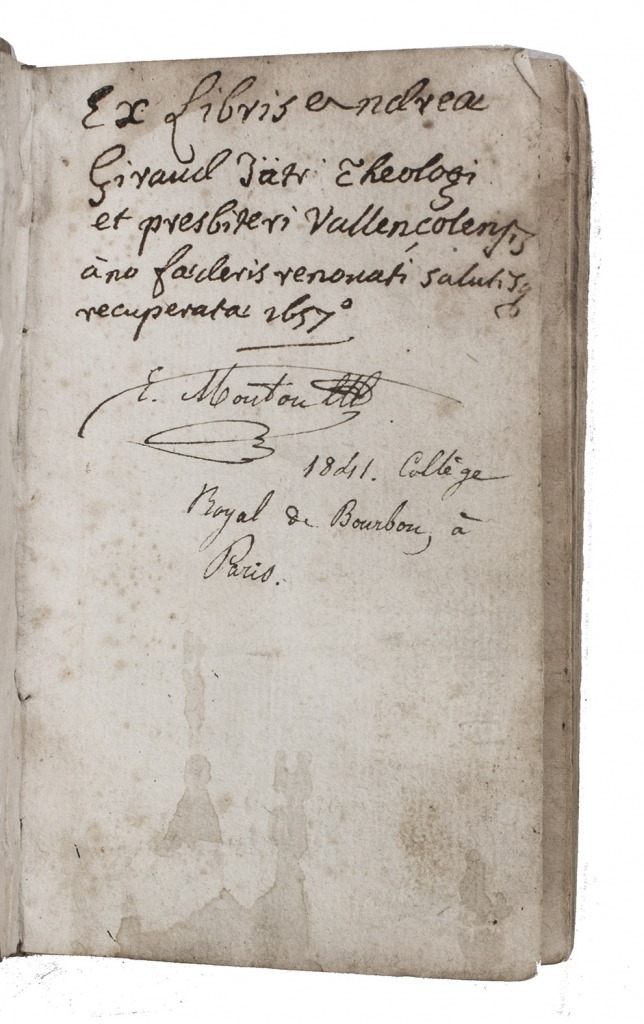 Ex Libris Andreæ
Giraud Jätr Theologi
et presbiteri Vallençolensis
àno fæderis renouati salutisq
recuperatæ 1657°
E. Mouton
1841. Collège
Royal de Bourbon, à
Paris.